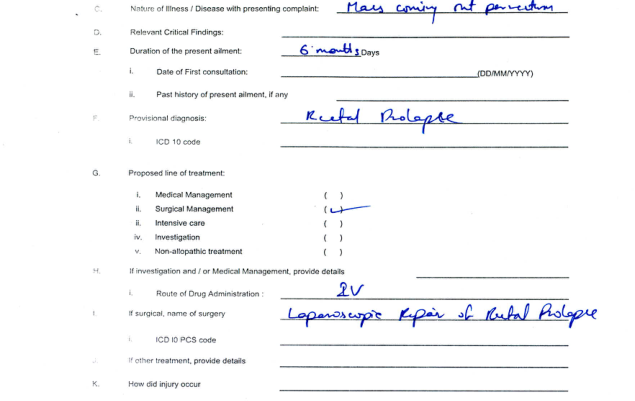 C. Nature of Illness / Disease with presenting complaint: Mass coming out per rectum
D. Relevant Critical Findings:
E. Duration of the present ailment: 6 months Days
i. Date of First consultation: (DD/MM/YYYY)
ii. Past history of present ailment, if any
F. Provisional diagnosis: Rectal Prolapse
i. ICD 10 code
G. Proposed line of treatment:
i. Medical Management ( )
ii. Surgical Management (✓)
ii. Intensive care ( )
iv. Investigation ( )
v. Non-allopathic treatment ( )
H. If investigation and / or Medical Management, provide details
i. Route of Drug Administration : IV
I. If surgical, name of surgery Laparoscopic Repair of Rectal Prolapse
i. ICD I0 PCS code
J. If other treatment, provide details
K. How did injury occur